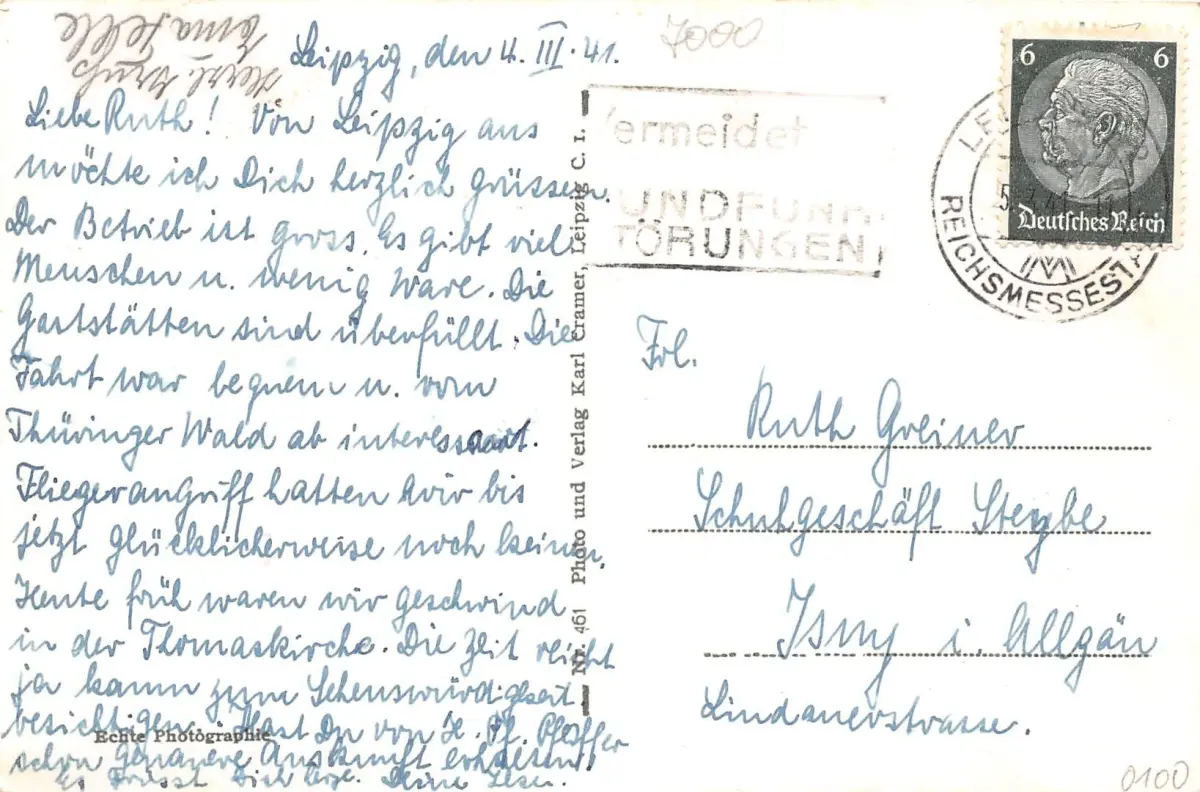 Leipzig, den 4. III. 41.
Liebe Ruth! Von Leipzig aus
möchte ich Dich herzlich grüssen.
Der Betrieb ist gross. Es gibt viel
Menschen u. wenig Ware. Die
Gaststätten sind überfüllt. Die
Fahrt war bequem u. vom
Thüringer Wald ab interessant.
Fliegerangriff hatten wir bis
jetzt glücklicherweise noch keinen.
Heute früh waren wir geschwind
in der Thomaskirche. Die Zeit reicht
ja kaum zum Sehenswürdigkeit
besichtigen. Hast Du von H. Pf. Pfeiffer
schon genauere Auskunft erhalten?
Es grüsst Dich herzl. Deine
Herzl. Gruß
Echte Photographie
Nr. 461 Photo und Verlag Karl Cramer, Leipzig C. 1.
7000
Vermeidet
RUNDFUNK
STÖRUNGEN
6 6
Deutsches Reich
REICHSMESSESTA
Frl.
Ruth Greiner
Schuhgeschäft
Isny i. Allgäu
Lindauerstrasse.
0100